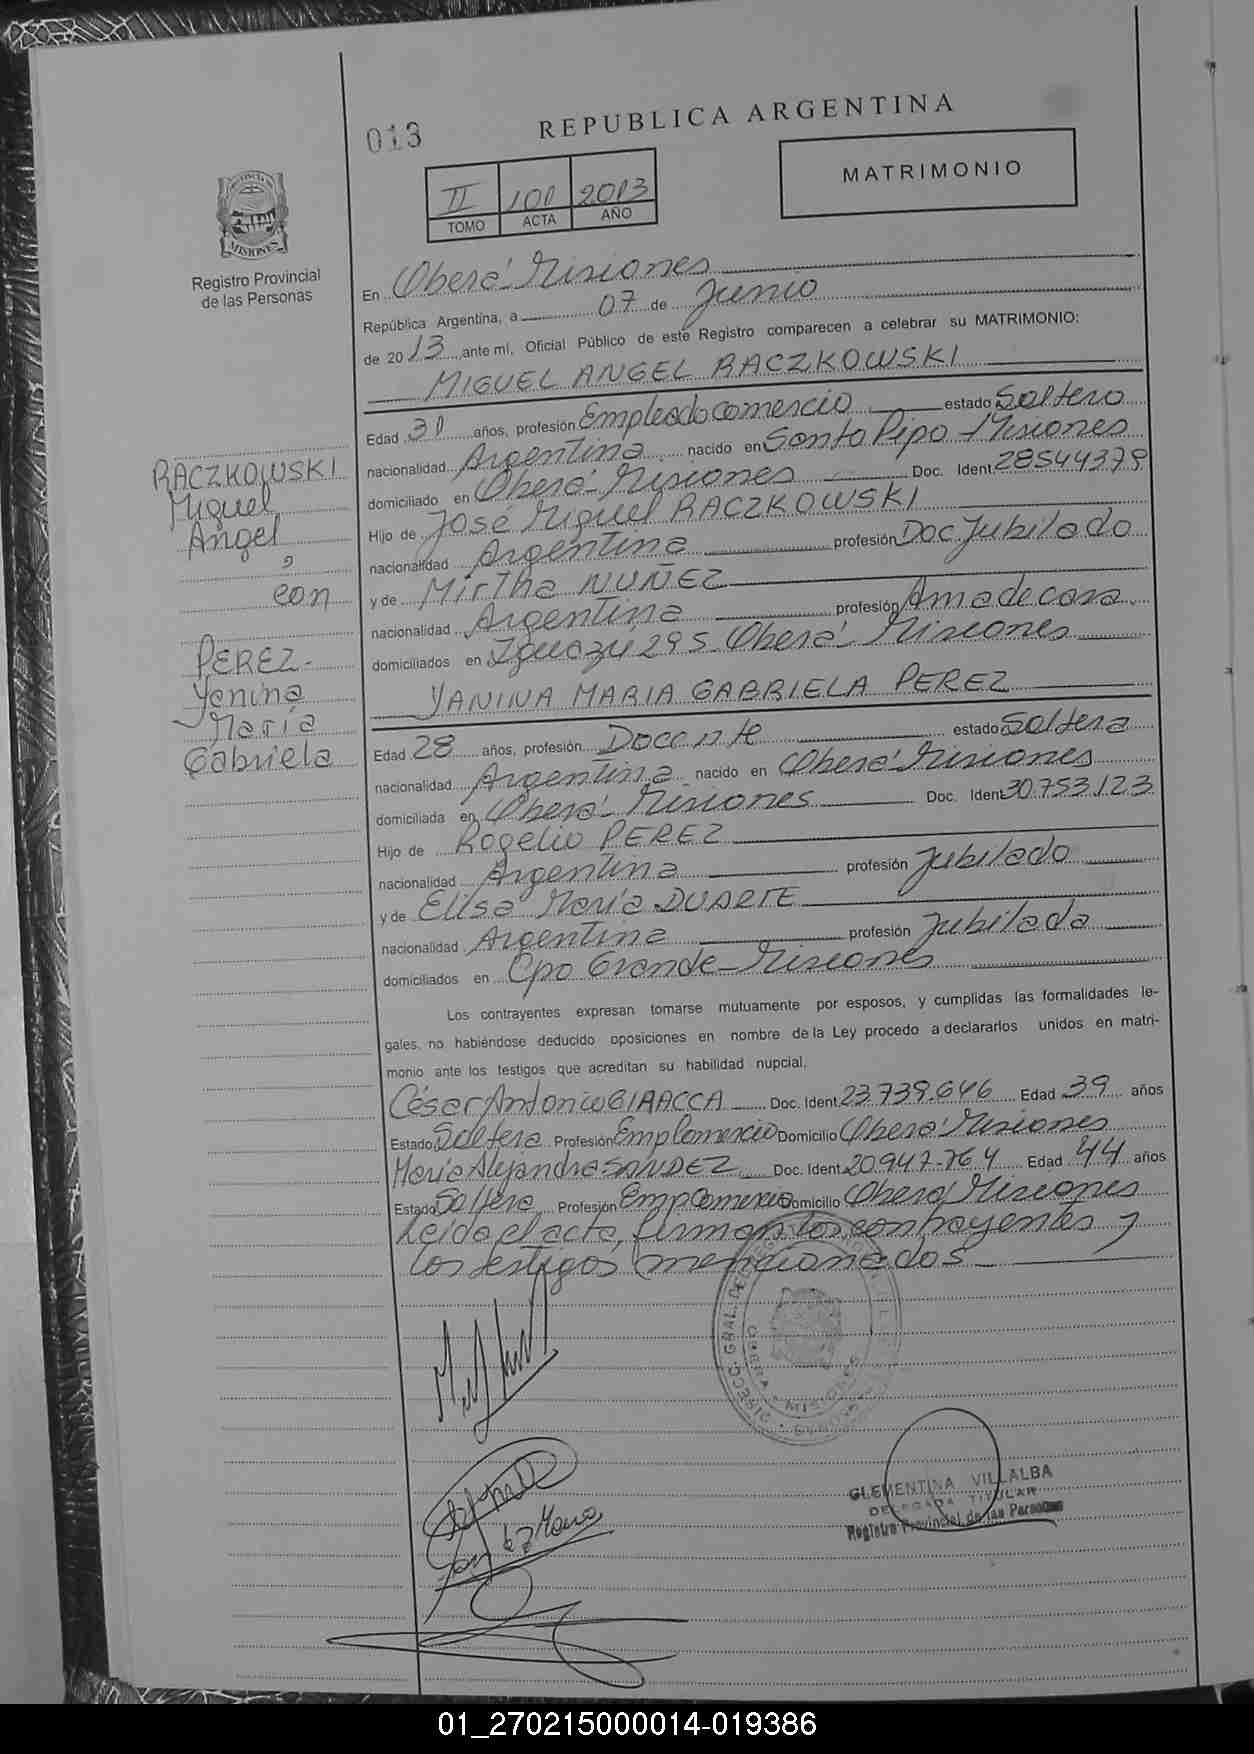 013
REPUBLICA ARGENTINA
MATRIMONIO
II 101 2013
TOMO ACTA AÑO
PROVINCIA DE
MISIONES
Registro Provincial
de las Personas
En Oberá - Misiones
República Argentina, a 07 de Junio
de 2013 ante mí, Oficial Público de este Registro comparecen a celebrar su MATRIMONIO:
MIGUEL ANGEL RACZKOWSKI
Edad 31 años, profesión Empleado comercio estado Soltero
nacionalidad Argentina nacido en Santo Pipo - Misiones
domiciliado en Oberá - Misiones Doc. Ident. 28544379
Hijo de José Miguel RACZKOWSKI
nacionalidad Argentina profesión Doc. Jubilado
y de Mirtha NUÑEZ
nacionalidad Argentina profesión Ama de casa
domiciliados en Iguazu 295 - Oberá - Misiones
YANINA MARIA GABRIELA PEREZ
Edad 28 años, profesión Docente estado Soltera
nacionalidad Argentina nacido en Oberá - Misiones
domiciliada en Oberá - Misiones Doc. Ident. 30.753.123
Hijo de Rogelio PEREZ
nacionalidad Argentina profesión Jubilado
y de Elisa María DUARTE
nacionalidad Argentina profesión Jubilada
domiciliados en Cpo Grande - Misiones
Los contrayentes expresan tomarse mutuamente por esposos, y cumplidas las formalidades le-
gales, no habiéndose deducido oposiciones en nombre de la Ley procedo a declararlos unidos en matri-
monio ante los testigos que acreditan su habilidad nupcial.
César Antonio Doc. Ident. 23.739.646 Edad 39 años
Estado Soltero Profesión Emp Comercio Domicilio Oberá - Misiones
María Alejandra SANDEZ Doc. Ident. 20.947.764 Edad 44 años
Estado Soltera Profesión Emp Comercio Domicilio Oberá - Misiones
Leído el acta, firman los contrayentes y
los testigos mencionados
RACZKOWSKI
Miguel
Angel
,
con
PEREZ -
Yanina
María
Gabriela
OBERA - MISIONES
CLEMENTINA VILLALBA
DELEGADA TITULAR
Registro Provincial de las Personas
01_270215000014-019386